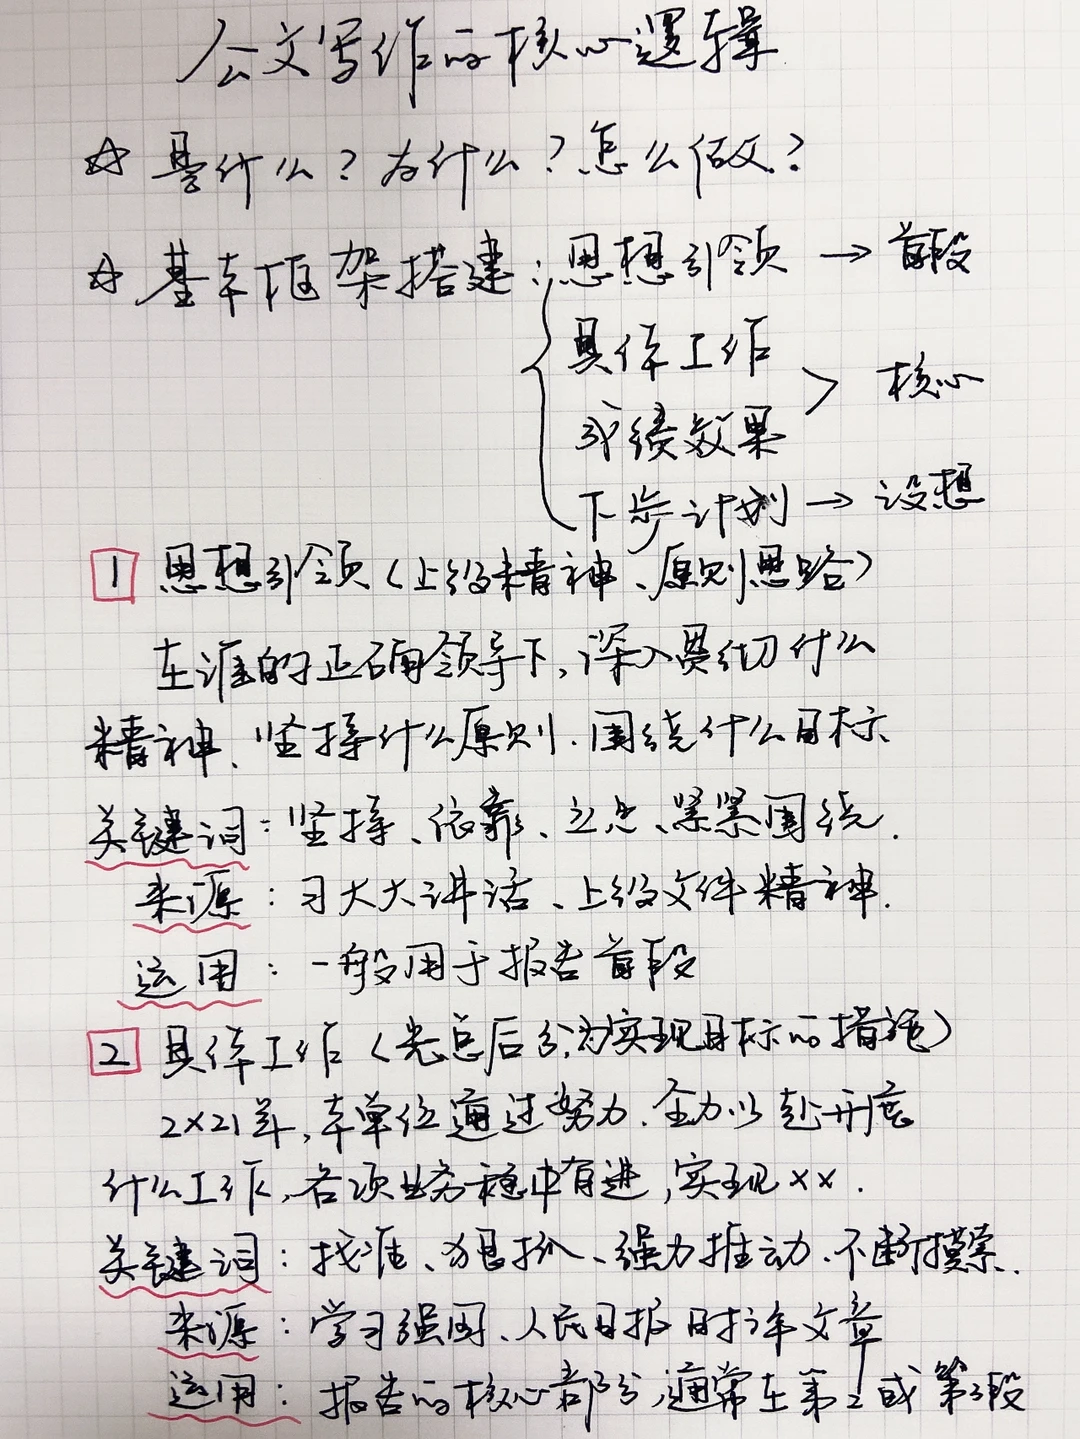 公文写作的核心逻辑
☆ 是什么？为什么？怎么做？
☆ 基本框架搭建：思想引领 → 首段
具体工作
> 核心
成绩效果
下步计划 → 设想
1 思想引领（上级精神、原则思路）
在谁的正确领导下，深入贯彻什么
精神、坚持什么原则、围绕什么目标
关键词：坚持、依靠、立足、紧紧围绕.
来源：习大大讲话、上级文件精神.
运用：一般用于报告首段
2 具体工作（先总后分，为实现目标的措施）
2x21年，本单位通过努力、全力以赴开展
什么工作，各项业务稳中有进，实现xx.
关键词：找准、狠抓、强力推动、不断摸索.
来源：学习强国、人民日报时评文章
运用：报告的核心部分，通常在第2或第3段